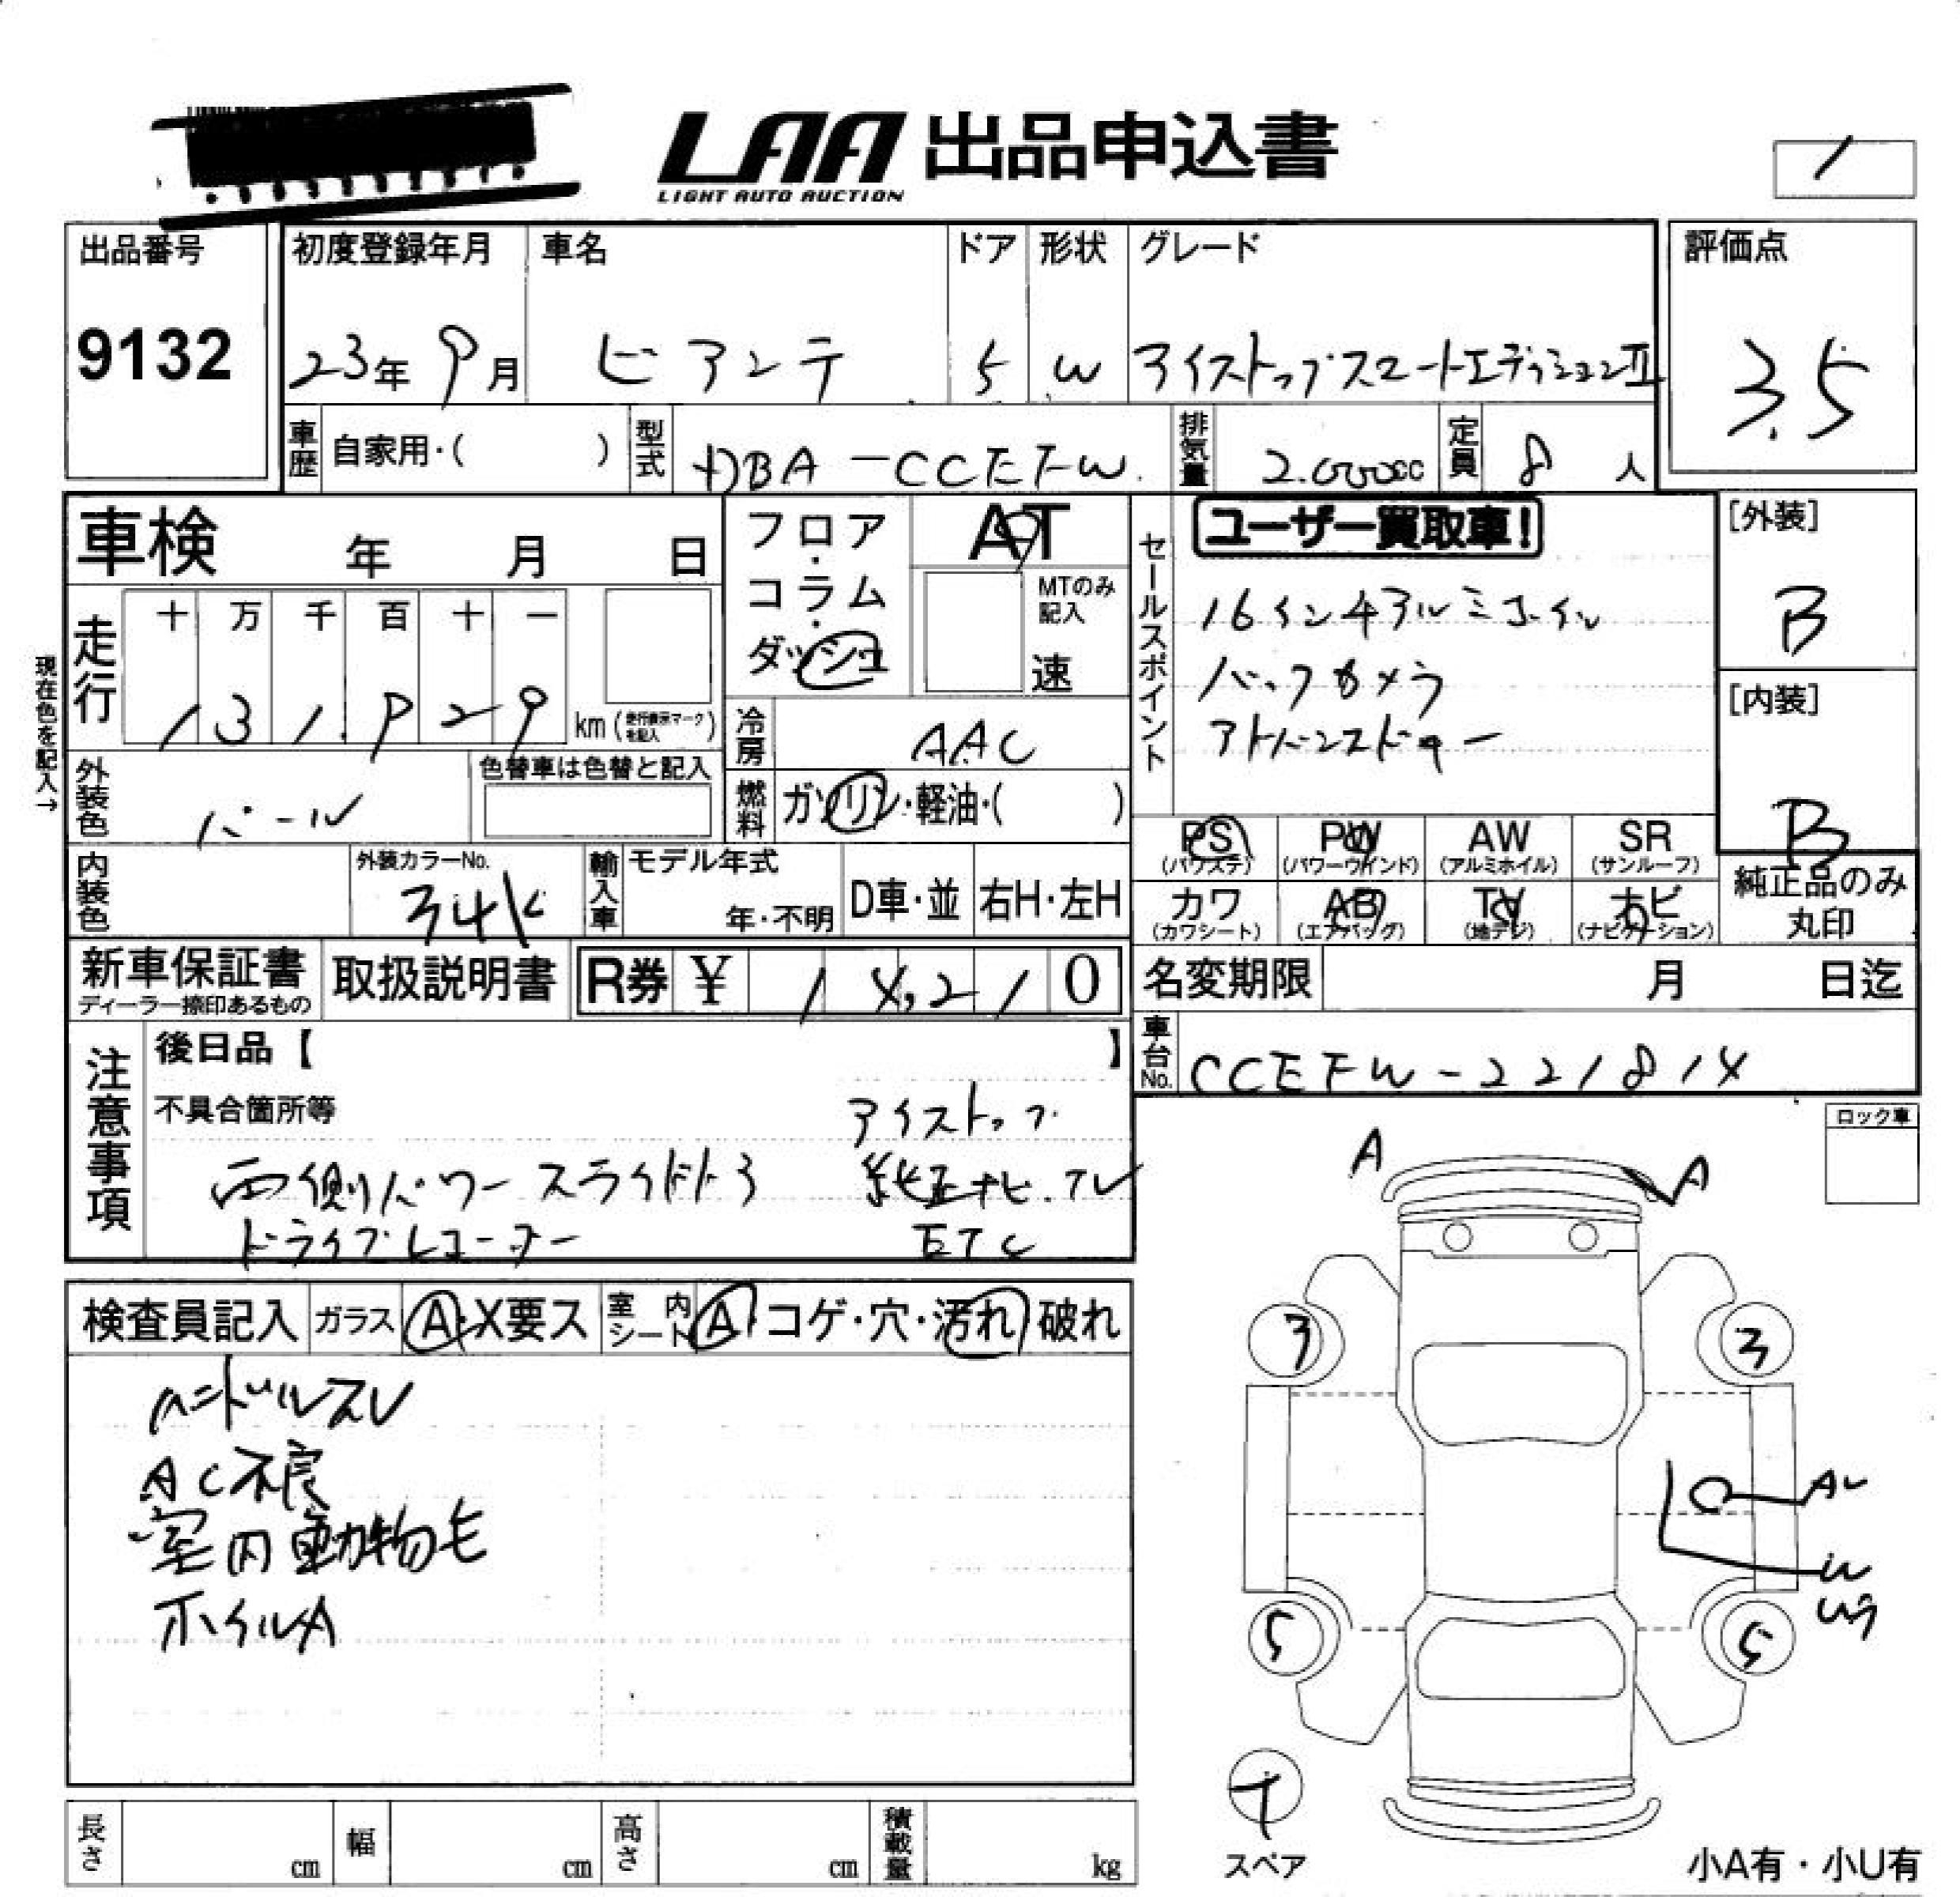 LAA 出品申込書
LIGHT AUTO AUCTION
出品番号
9132
初度登録年月
23年 9月
車名
ビアンテ
ドア
5
形状
W
グレード
アイストップスマートエディションⅡ
評価点
3.5
車歴 自家用・( )
型式 DBA-CCEFW
排気量 2.000cc
定員 8人
車検 年 月 日
フロア・コラム・ダッシュ
AT
MTのみ記入
速
セールスポイント
ユーザー買取車!
16インチアルミホイル
バックカメラ
アドバンスドキー
[外装]
B
[内装]
B
現在色を記入→
走行
十 万 千 百 十 一
131.929 km (走行表示マークを記入)
冷房 AAC
外装色 パール
色替車は色替と記入
燃料 ガソリン・軽油・( )
PS (パワステ)
PW (パワーウインド)
AW (アルミホイル)
SR (サンルーフ)
カワ (カワシート)
AB (エアバッグ)
TV (地デジ)
ナビ (ナビゲーション)
純正品のみ丸印
内装色
外装カラーNo. 34K
輸入車 モデル年式 年・不明 D車・並 右H・左H
新車保証書
ディーラー捺印あるもの
取扱説明書
R券 ¥ 14,210
名変期限 月 日迄
車台No. CCEFW-221814
注意事項
後日品【 】
不具合箇所等
アイストップ
両側パワースライドドア 純正ナビ.TV
ドライブレコーダー ETC
ロック車
検査員記入 ガラス A・X要ス 室内シート A コゲ・穴・汚れ 破れ
ハンドルスレ
AC不良
室内動物毛
ホイルA
A A
3 3
5 5
スペア
長さ cm 幅 cm 高さ cm 積載量 kg
小A有・小U有